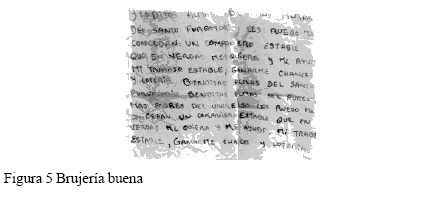 BENDITAS ALMAS
DEL SANTO PURGATORIO, LES RUEGO ME
CONCEDAN: UN COMPAÑERO ESTABLE
QUE EN VERDAD ME QUIERA Y ME AYUDE
MI TRABAJO ESTABLE, GANARME CHANCES
Y LOTERIA, BENDITAS ALMAS DEL SANTO
PURGATORIO BENDITAS ALMAS DEL
MAS DEL UNIVERSO LES RUEGO ME
CONCEDAN UN COMPAÑERO ESTABLE QUE EN
VERDAD ME QUIERA Y ME AYUDE. MI TRABAJO
ESTABLE, GANARME CHANCES Y LOTERIAS
Figura 5 Brujería buena